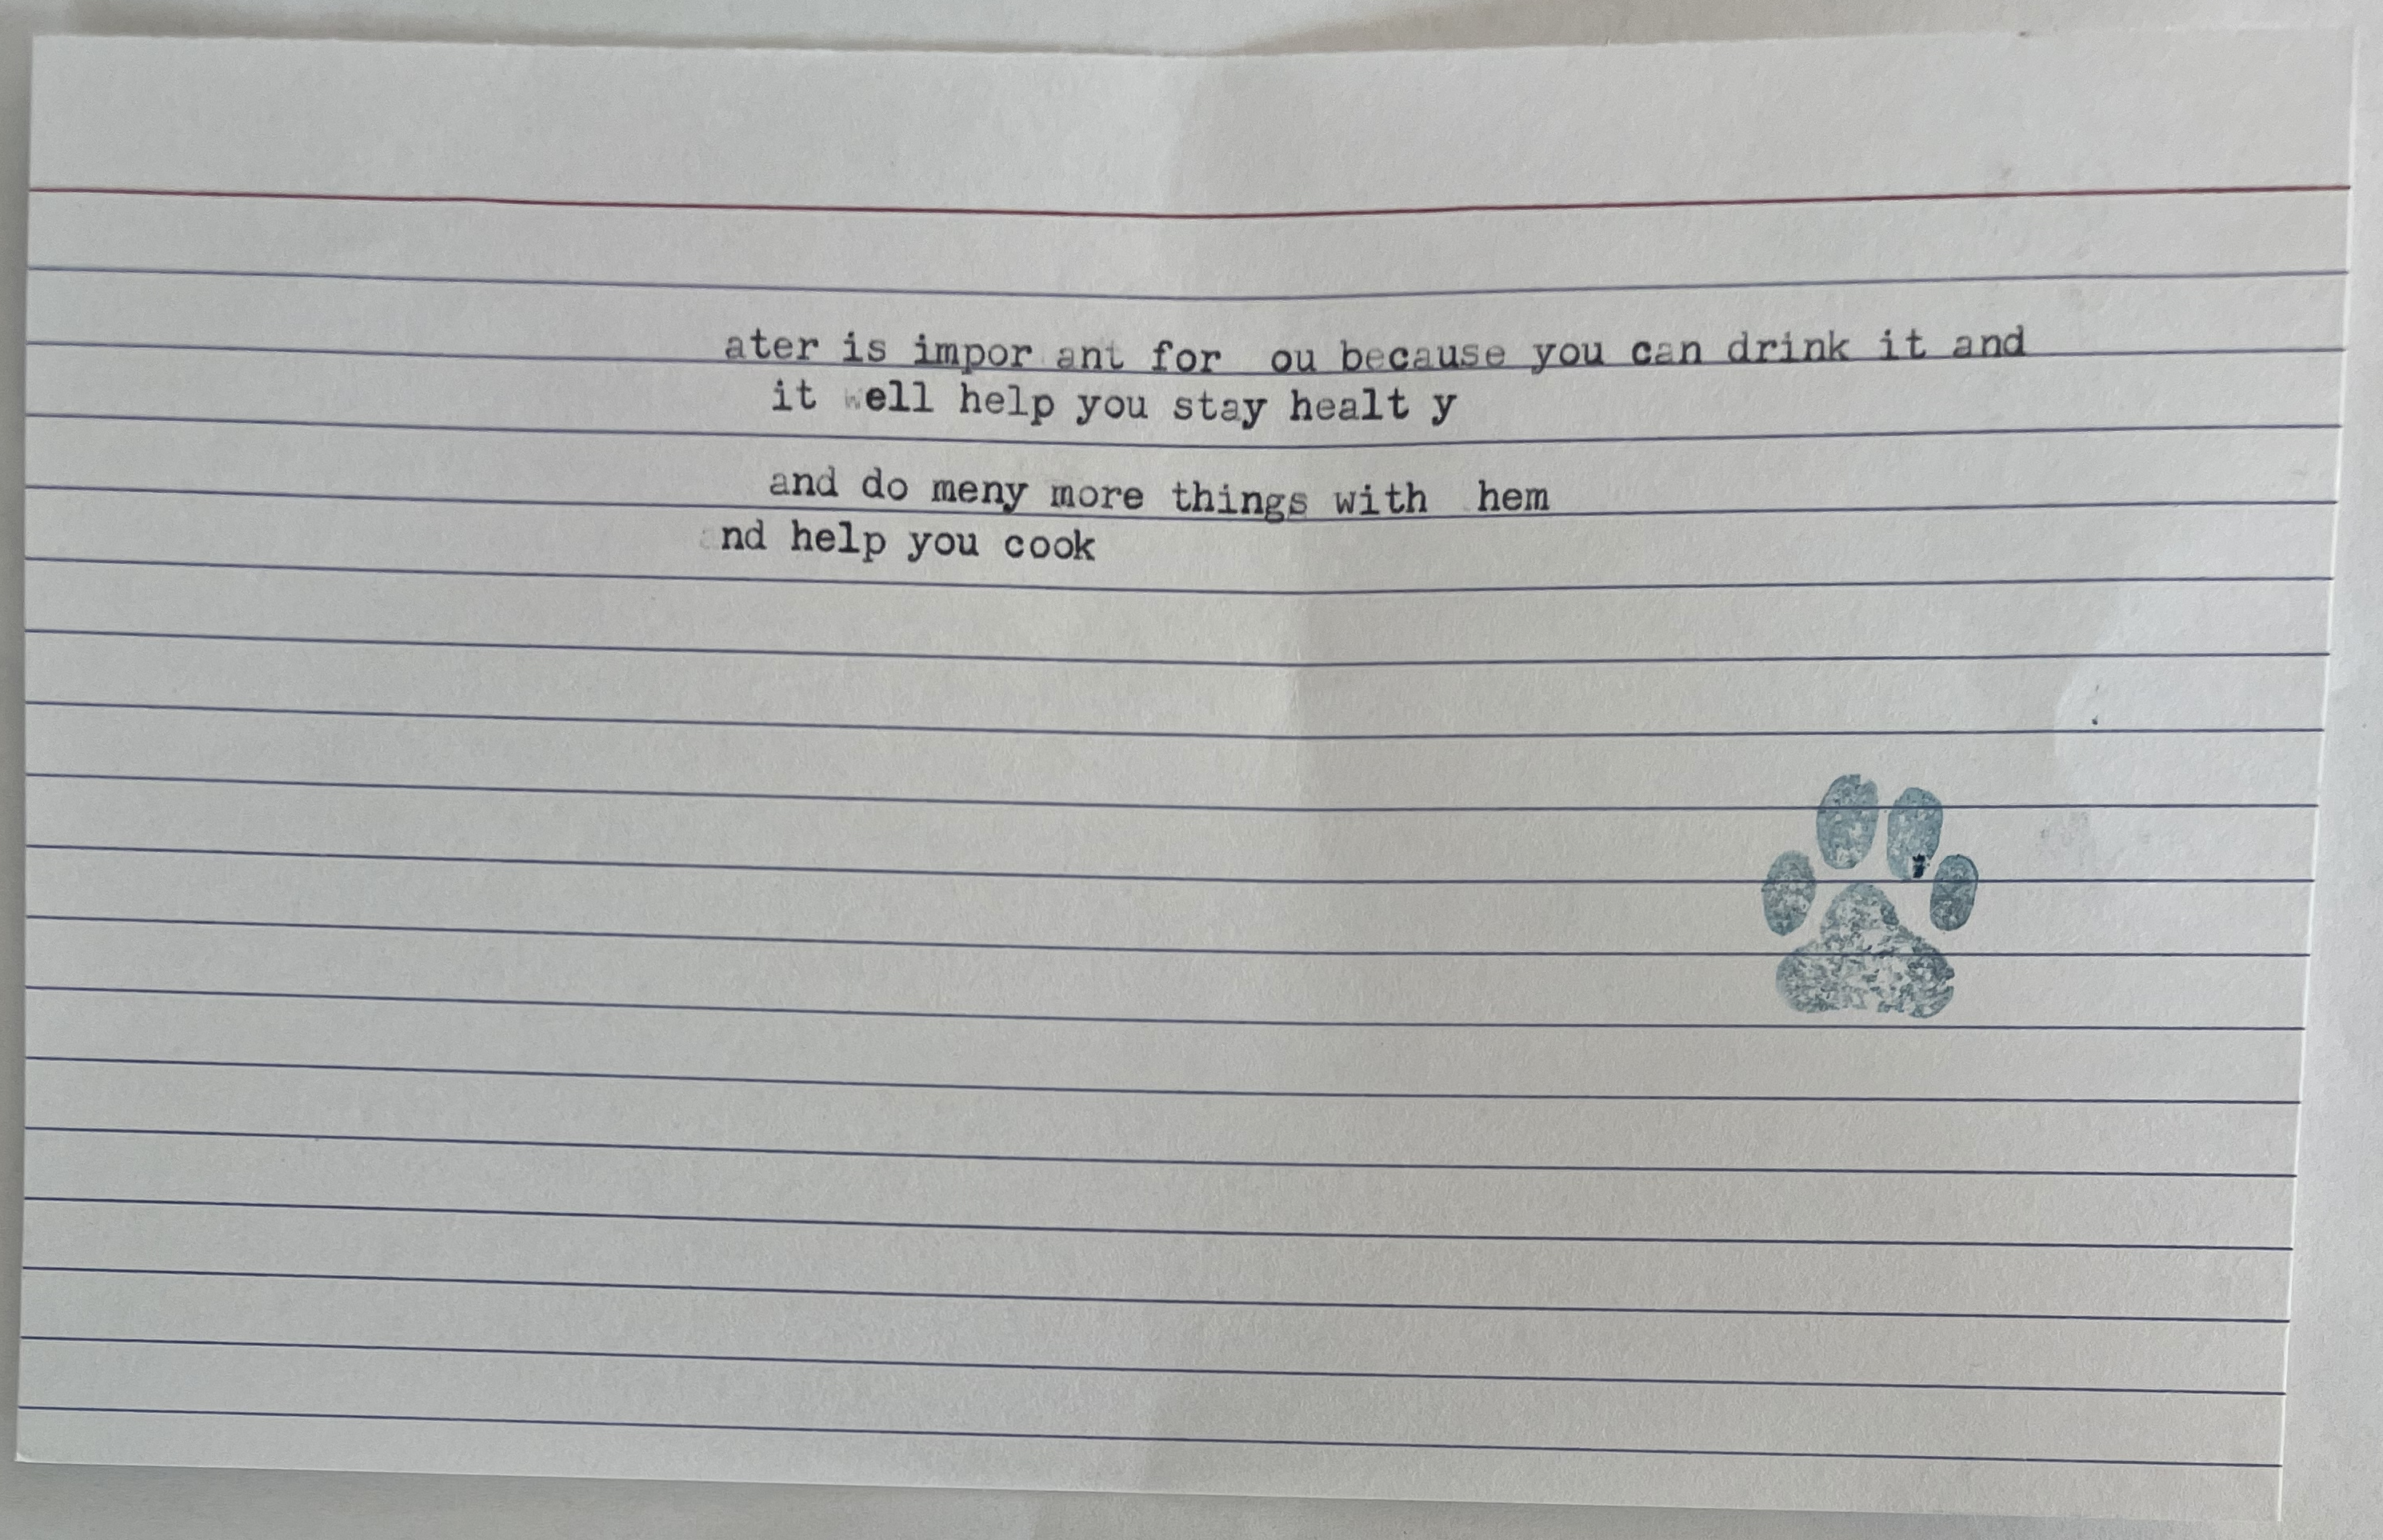 ater is impor ant for  ou because you can drink it and
it well help you stay healt y
and do meny more things with  hem
and help you cook